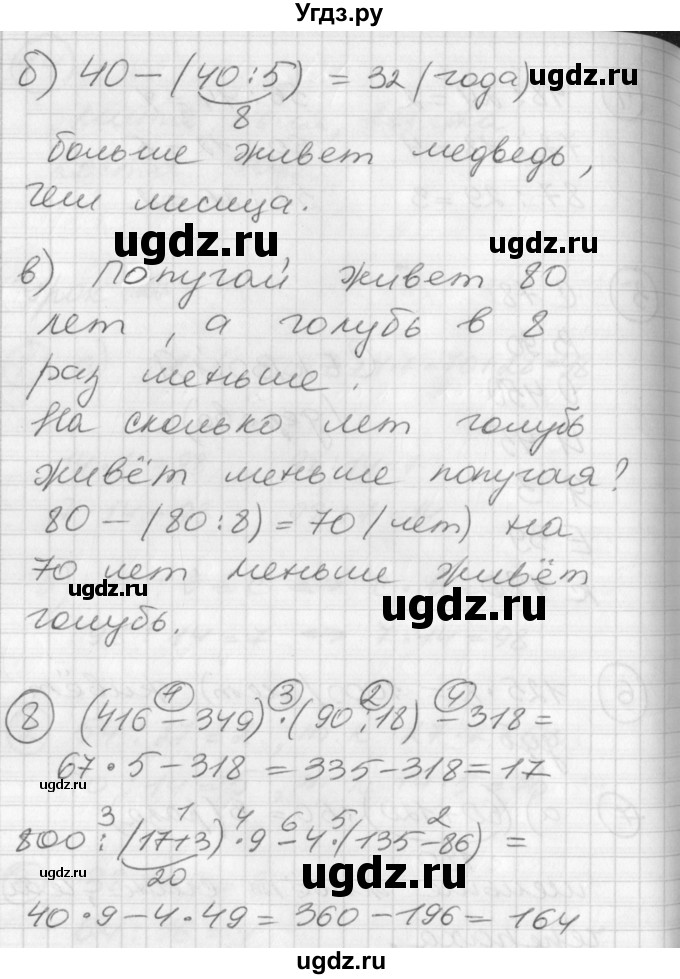 Угдз.ру
б) 40 – (40 : 5) = 32 (года)
8
больше живет медведь,
чем лисица.
ugdz.ru ugdz.ru
в) Попугай живет 80
лет, а голубь в 8
раз меньше.
На сколько лет голубь
живёт меньше попугая?
80 – (80 : 8) = 70 (лет) на
70 лет меньше живёт
ugdz.ru ugdz.ru
голубь.
1 3 2 4
8 (416 – 349) · (90 : 18) – 318 =
67 · 5 – 318 = 335 – 318 = 17
ugdz.ru
3 1 4 6 5 2
800 : (17+3) · 9 – 4 · (135 – 86) =
20
ugdz.ru ugdz.ru
40 · 9 – 4 · 49 = 360 – 196 = 164
ugdz.ru ugdz.ru